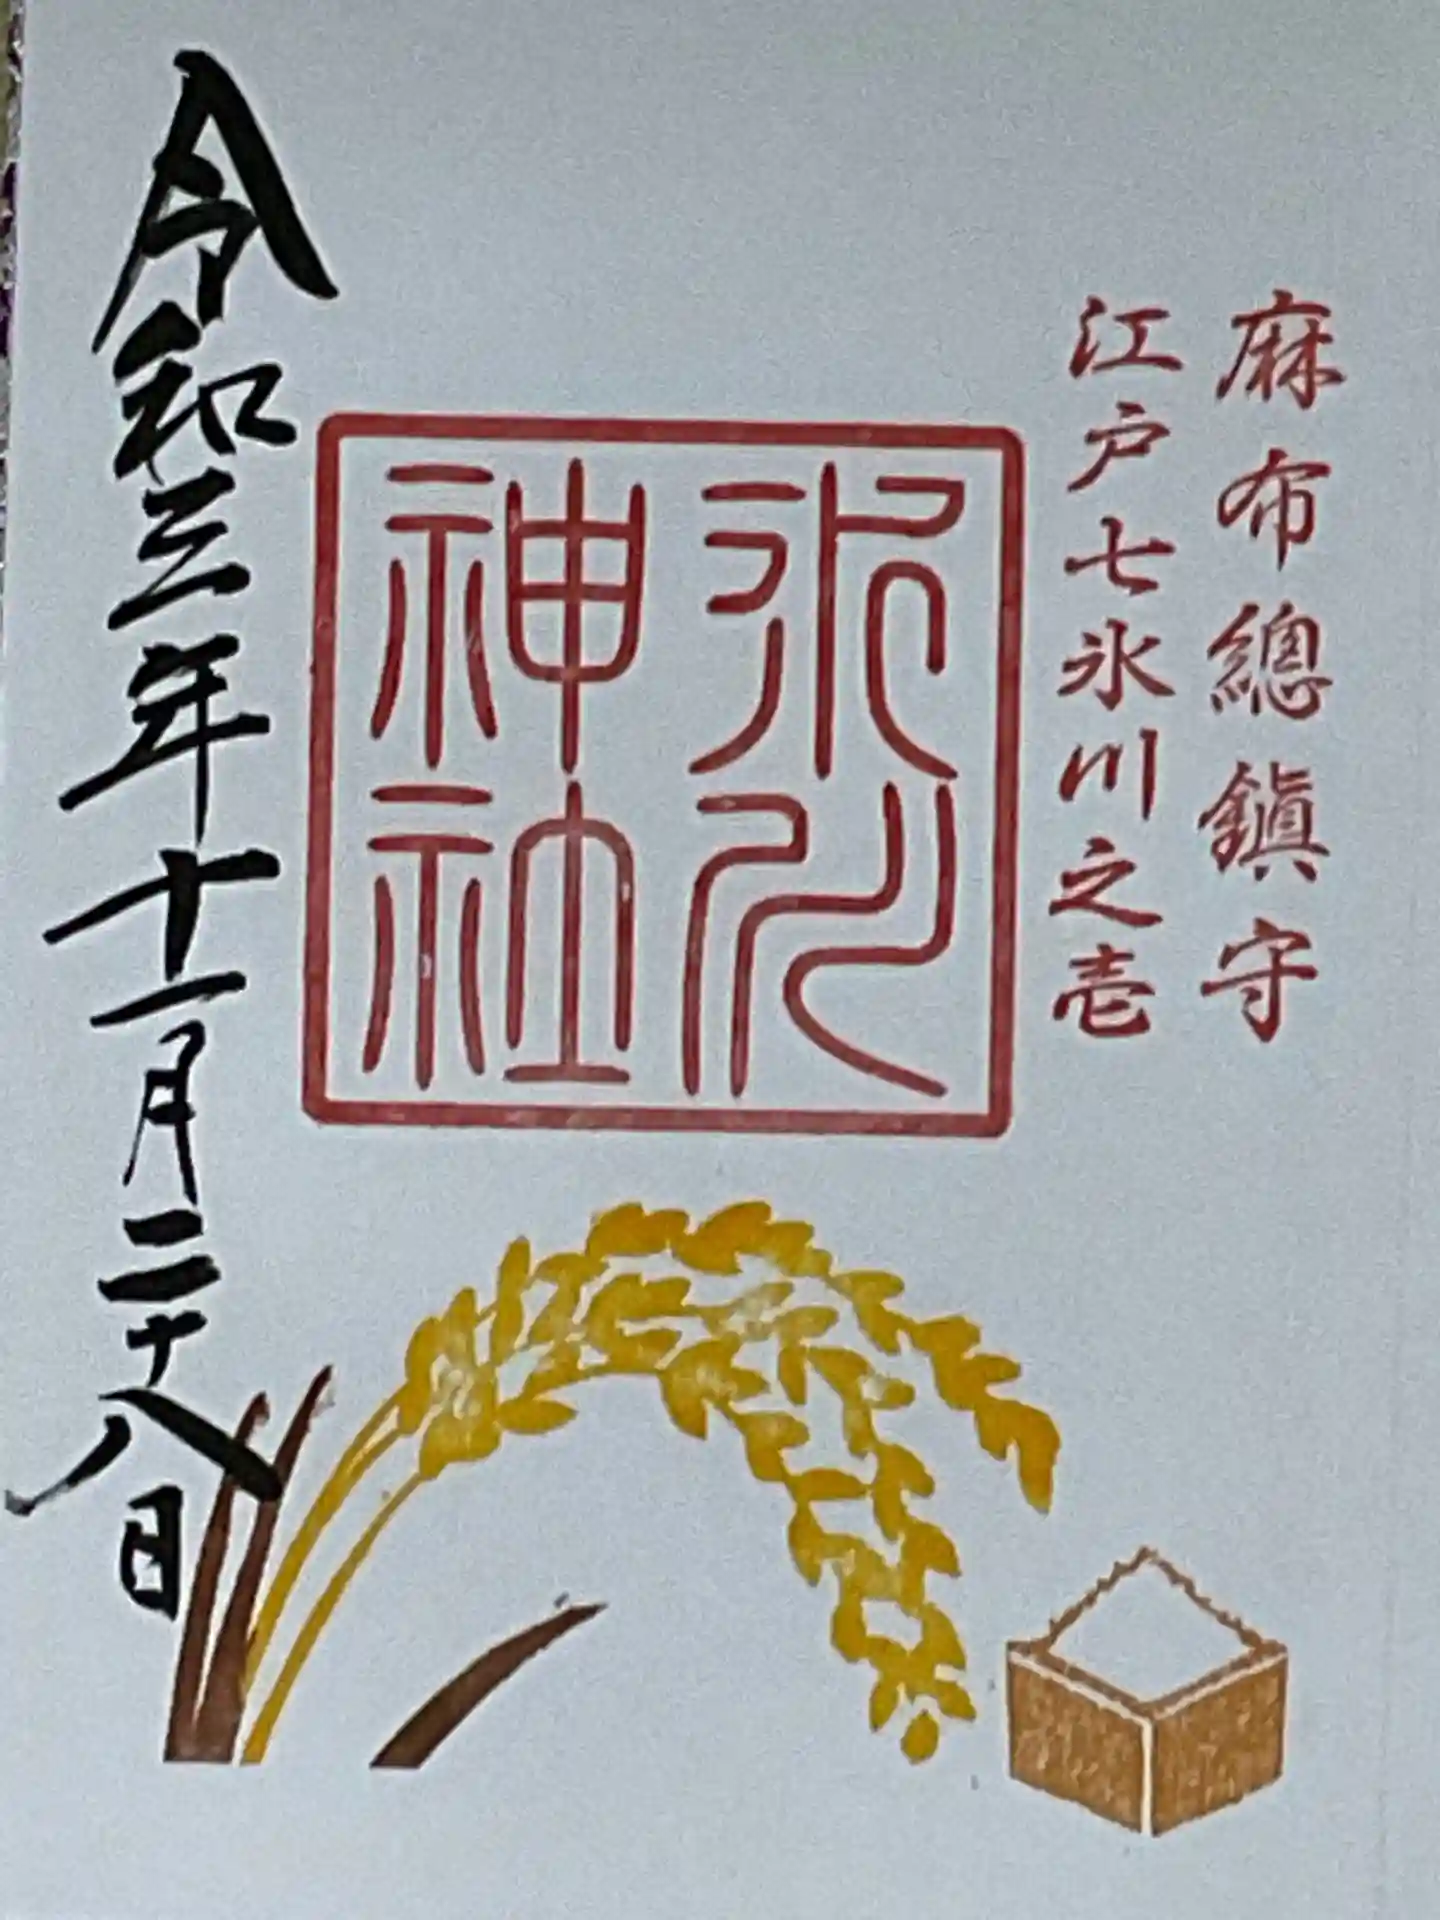 麻布總鎭守
江戸七氷川之壱
氷川
神社
令和三年十一月二十八日